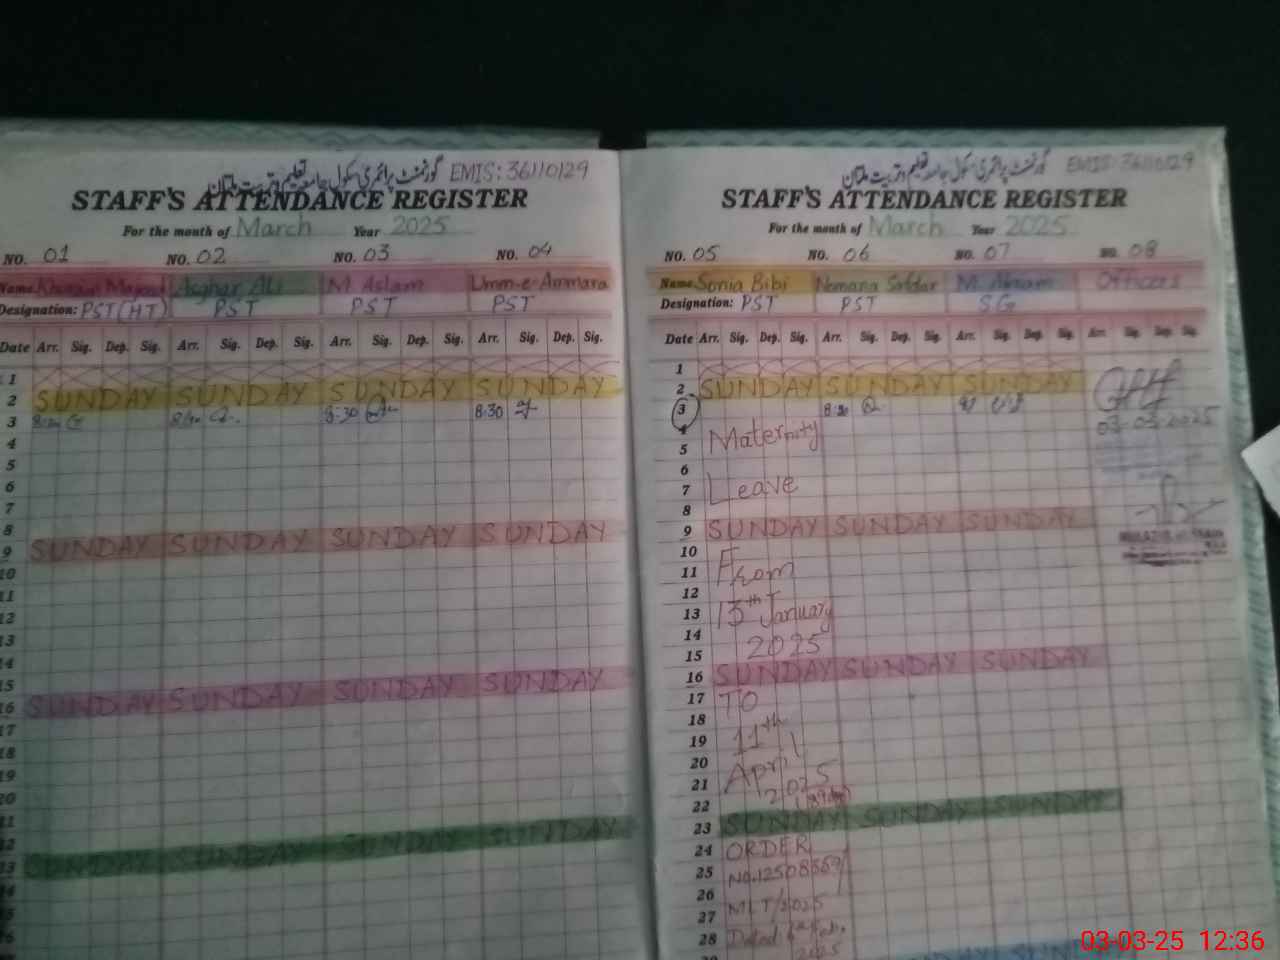 گورنمنٹ پرائمری سکول جامعہ تعلیم و تربیت ملتان EMIS: 36110129
STAFF'S ATTENDANCE REGISTER
For the month of March Year 2025
NO. 01 NO. 02 NO. 03 NO. 04
Name Asghar Ali M Aslam Umm-e-Ammara
Designation: PST (HT) PST PST PST
Date Arr. Sig. Dep. Sig. Arr. Sig. Dep. Sig. Arr. Sig. Dep. Sig. Arr. Sig. Dep. Sig.
1
2 SUNDAY SUNDAY SUNDAY SUNDAY
3 8-30 8:30
4
5
6
7
8
9 SUNDAY SUNDAY SUNDAY SUNDAY
10
11
12
13
14
15
16 SUNDAY SUNDAY SUNDAY SUNDAY
17
18
19
20
SUNDAY SUNDAY SUNDAY SUNDAY
گورنمنٹ پرائمری سکول جامعہ تعلیم و تربیت ملتان EMIS: 36110129
STAFF'S ATTENDANCE REGISTER
For the month of March Year 2025
NO. 05 NO. 06 NO. 07 NO. 08
Name Sonia Bibi Officers
Designation: PST PST SG
Date Arr. Sig. Dep. Sig. Arr. Sig. Dep. Sig. Arr. Sig. Dep. Sig. Arr. Sig. Dep. Sig.
1
2 SUNDAY SUNDAY SUNDAY
3
03-03-2025
4
5 Maternity
6
7 Leave
8
9 SUNDAY SUNDAY SUNDAY
10
11 From
12
13 13th January
14
15 2025
16 SUNDAY SUNDAY SUNDAY
17 TO
18
19 11th
20
21 April 2025
22
23 SUNDAY SUNDAY SUNDAY
24 ORDER
25
26
27 MLT/2025
28 Dated
2025
03-03-25 12:36